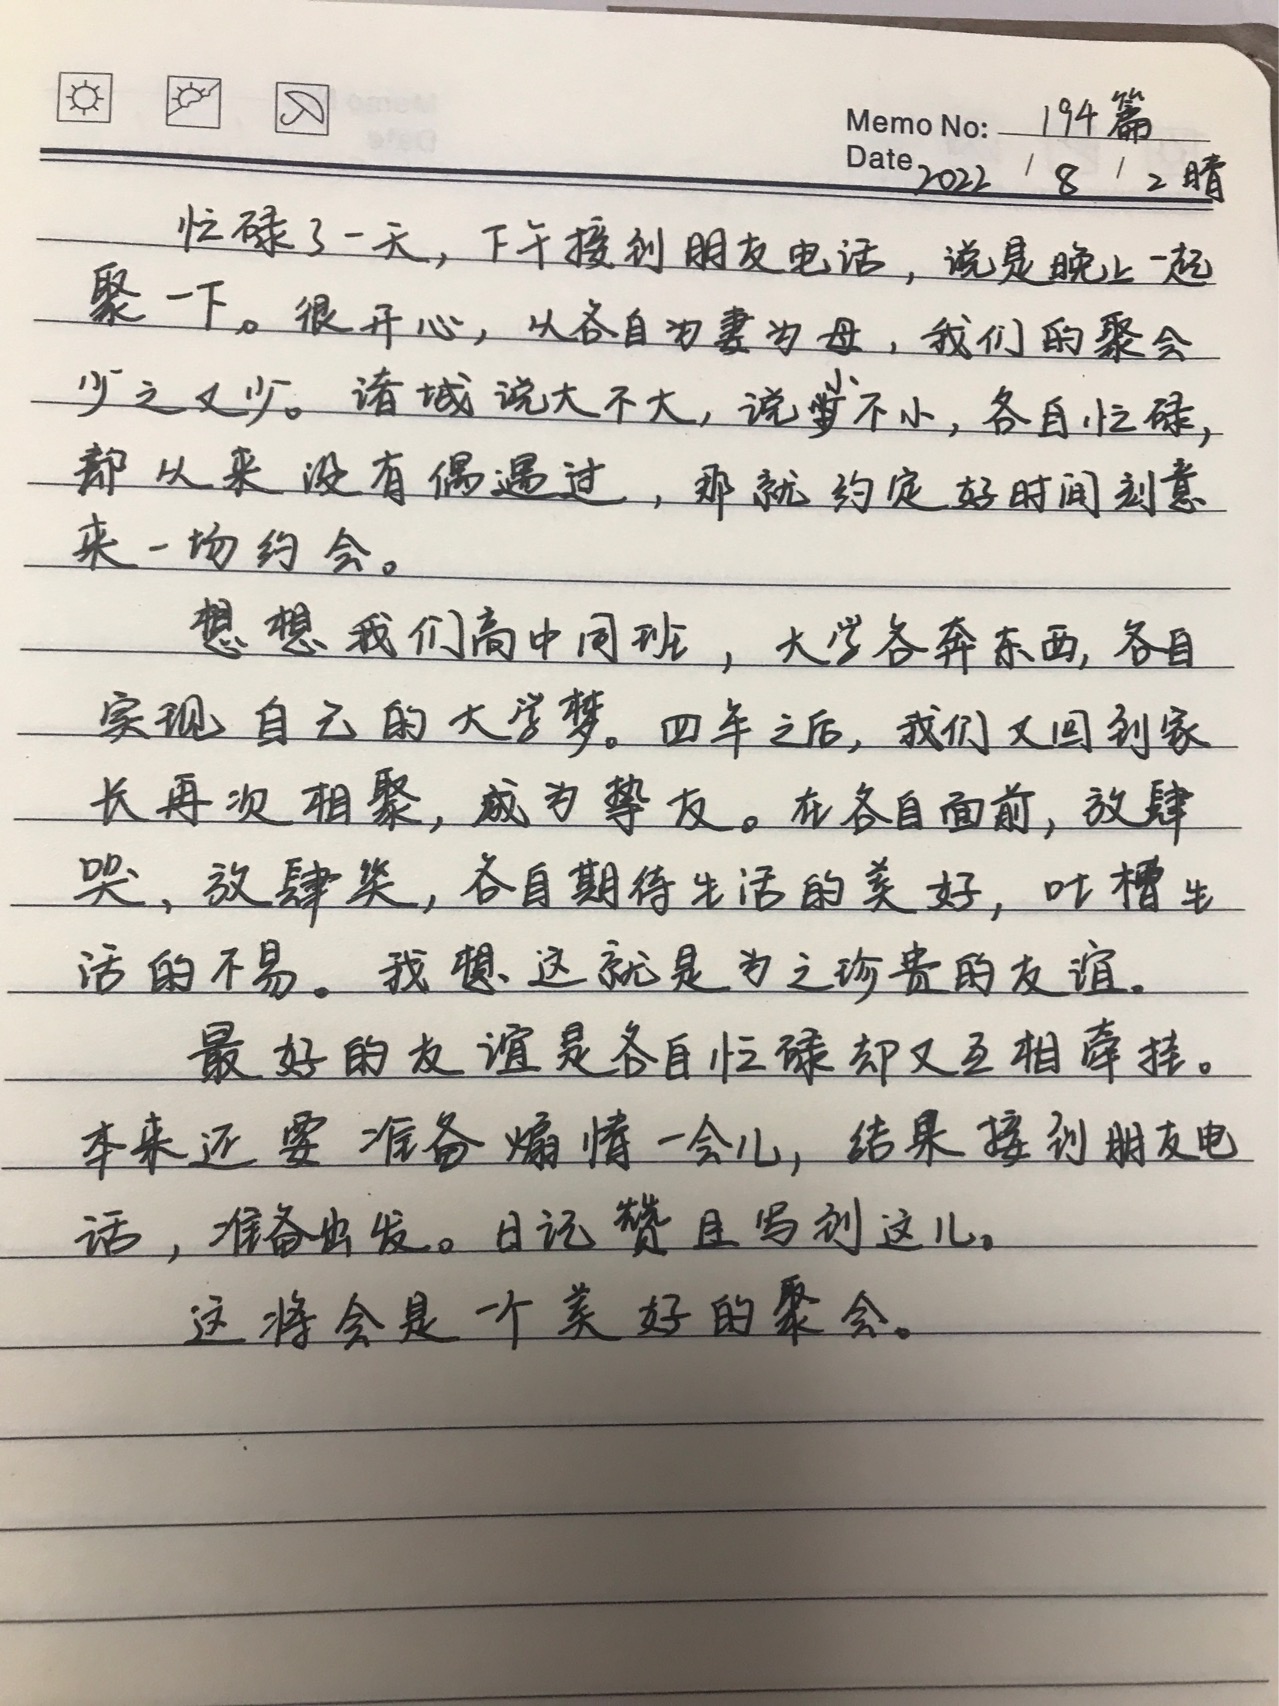 Memo No: 194篇
Date 2022 / 8 / 2 晴
忙碌了一天，下午接到朋友电话，说是晚上一起
聚一下。很开心，从各自为妻为母，我们的聚会
少之又少。诸城说大不大，说小不小，各自忙碌，
都从来没有偶遇过，那就约定好时间刻意
来一场约会。
想想我们高中同班，大学各奔东西，各自
实现自己的大学梦。四年之后，我们又回到家
长再次相聚，成为挚友。在各自面前，放肆
哭，放肆笑，各自期待生活的美好，吐槽生
活的不易。我想这就是为之珍贵的友谊。
最好的友谊是各自忙碌却又互相牵挂。
本来还要准备煽情一会儿，结果接到朋友电
话，准备出发。日记赞且写到这儿。
这将会是一个美好的聚会。